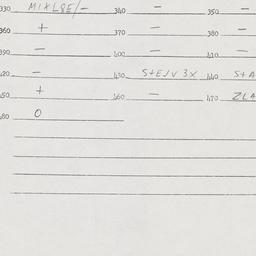 330 MIXL8E/- 340 - 350 -
360 + 370 - 380 -
390 - 400 - 410 -
420 - 430 S+EJV 3X 440 S+A
450 + 460 - 470 ZLA
480 0